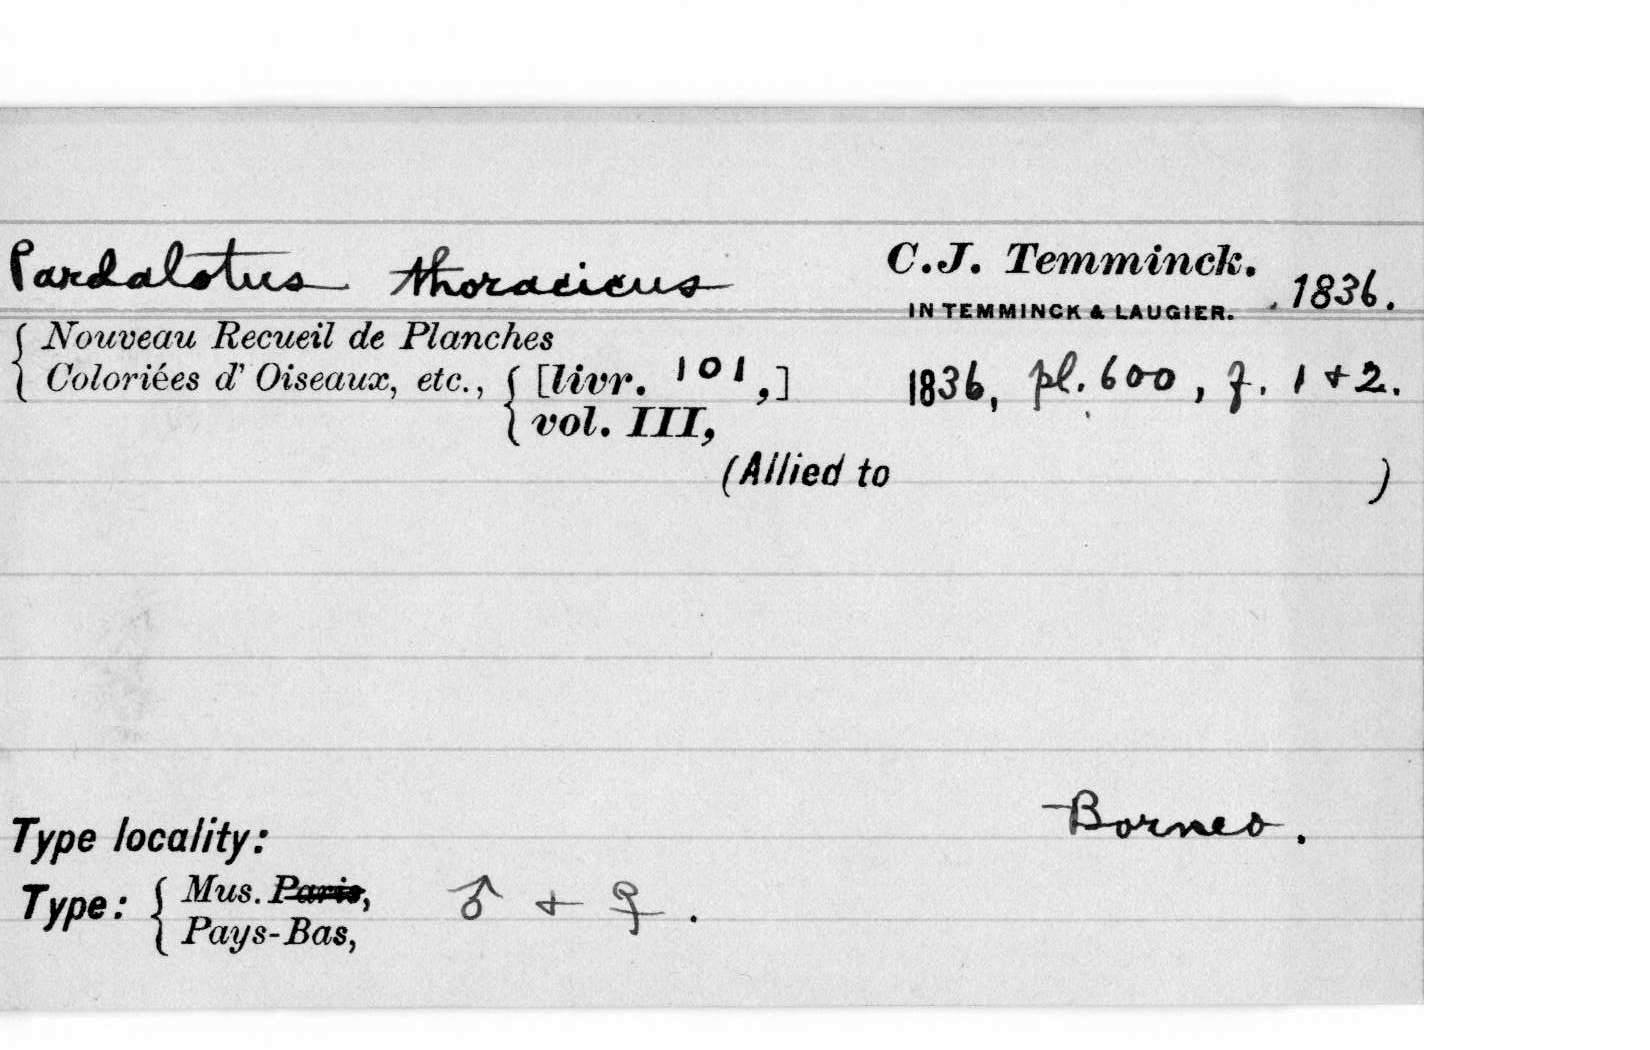 Pardalotus thoracicus C.J. Temminck.
IN TEMMINCK & LAUGIER. .1836.
{ Nouveau Recueil de Planches
Coloriées d' Oiseaux, etc., { [livr. 101,] 1836, pl. 600, f. 1 + 2.
vol. III,
(Allied to )
Type locality: Borneo.
Type: { Mus. Paris, ♂ + ♀.
Pays-Bas,